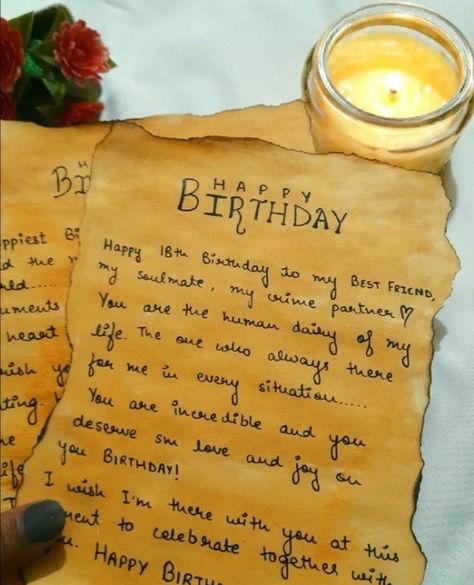 HAPPY
BIRTHDAY
Happy 18th Birthday to my BEST FRIEND,
my soulmate, my crime partner♡
You are the human dairy of my
life. The one who always there
for me in every situation.....
You are incredible and you
deserve sm love and joy on
you BIRTHDAY!
I wish I'm there with you at this
ment to celebrate together with
u. HAPPY BIRTH
H
BI
ppiest Bi
d the
rld.....
uments
heart
wish yo
ting
e
life